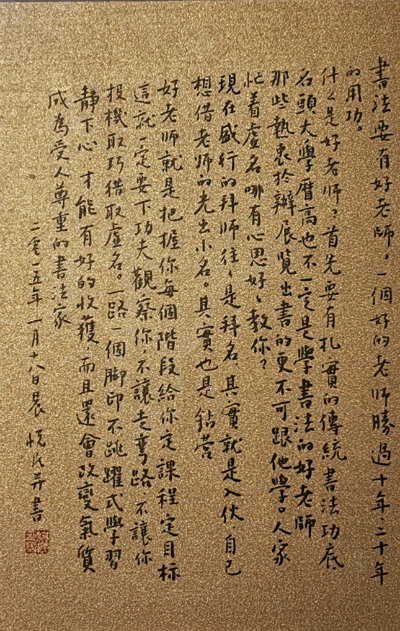 書法要有好老師。一個好的老師勝過十年、二十年
的用功。
什么是好老师？首先要有扎實的傳統書法功底、
名頭大學曆高也不一定是學書法的好老师
那些熱衷於辦展覽出書的更不可跟他學。人家
忙着虚名哪有心思好好教你？
現在盛行的拜师往往是拜名其實就是入伙自己
想借老师的光出小名。其實也是鈷营
好老师就是把握你每個階段給你定課程定目标
這就一定要下功夫觀察你，不讓走彎路不讓你
投機取巧借取虚名。一路一個脚印不跳躍式學習
静下心才能有好的收獲而且還會改變氣質
成為受人尊重的書法家
二〇一五年一月十八日晨 并書